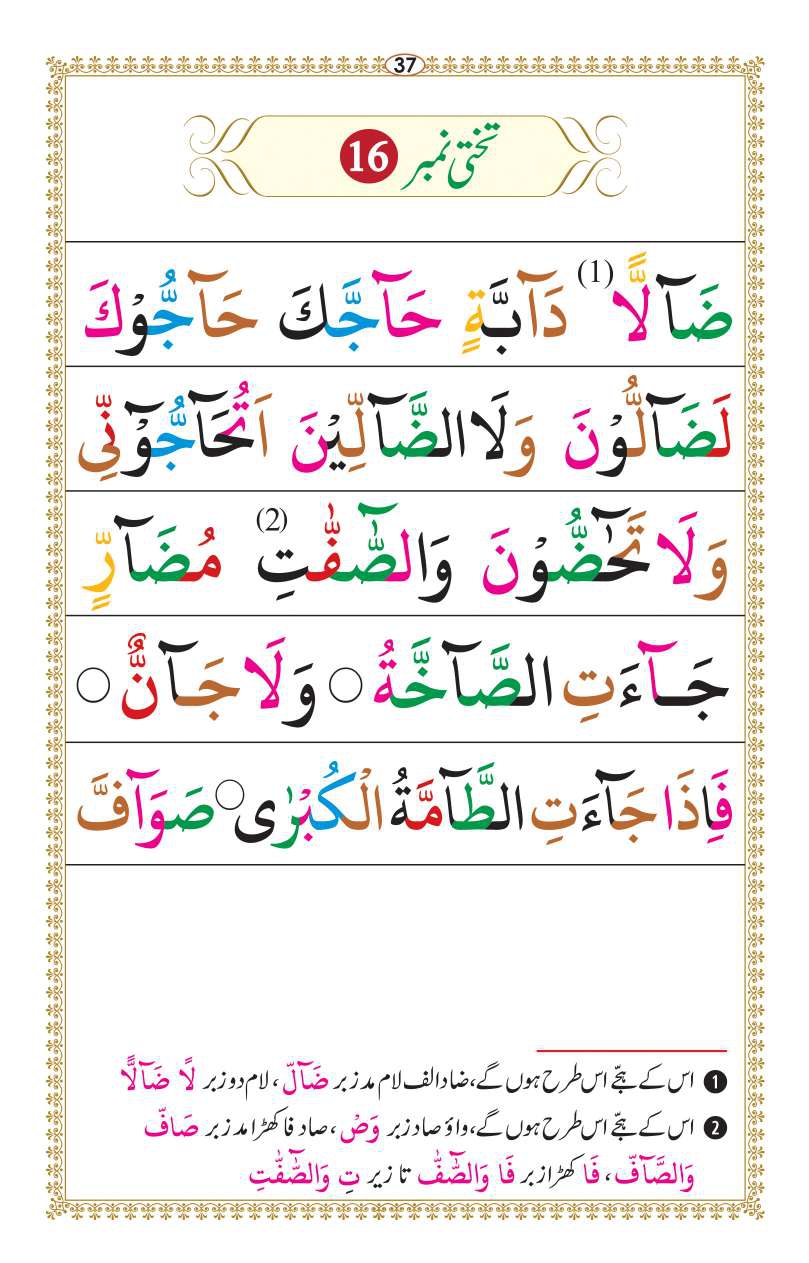 37
تختی نمبر 16
ضَآلًّا (1) دَآبَّةٍ حَآجَّكَ حَآجُّوْكَ
لَضَآلُّوْنَ وَلَا الضَّآلِّيْنَ اَتُحَآجُّوْٓنِّى
وَلَا تَحٰٓضُّوْنَ وَالصّٰٓفّٰتِ (2) مُضَآرٍّ
جَآءَتِ الصَّآخَّةُ ○ وَلَا جَآنٌّ ○
فَاِذَا جَآءَتِ الطَّآمَّةُ الْكُبْرٰى ○ صَوَآفَّ
1 اس کے ہجّے اس طرح ہوں گے، ضاد الف لام مد زبر ضَآلّ، لام دو زبر لًا ضَآلًّا
2 اس کے ہجّے اس طرح ہوں گے، واؤ صاد زبر وَصْ، صاد فا کھڑا مد زبر صَافّ
وَالصَّآفّ، فَا کھڑا زبر فَا وَالصّٰٓفّٰ تا زیر تِ وَالصّٰٓفّٰتِ